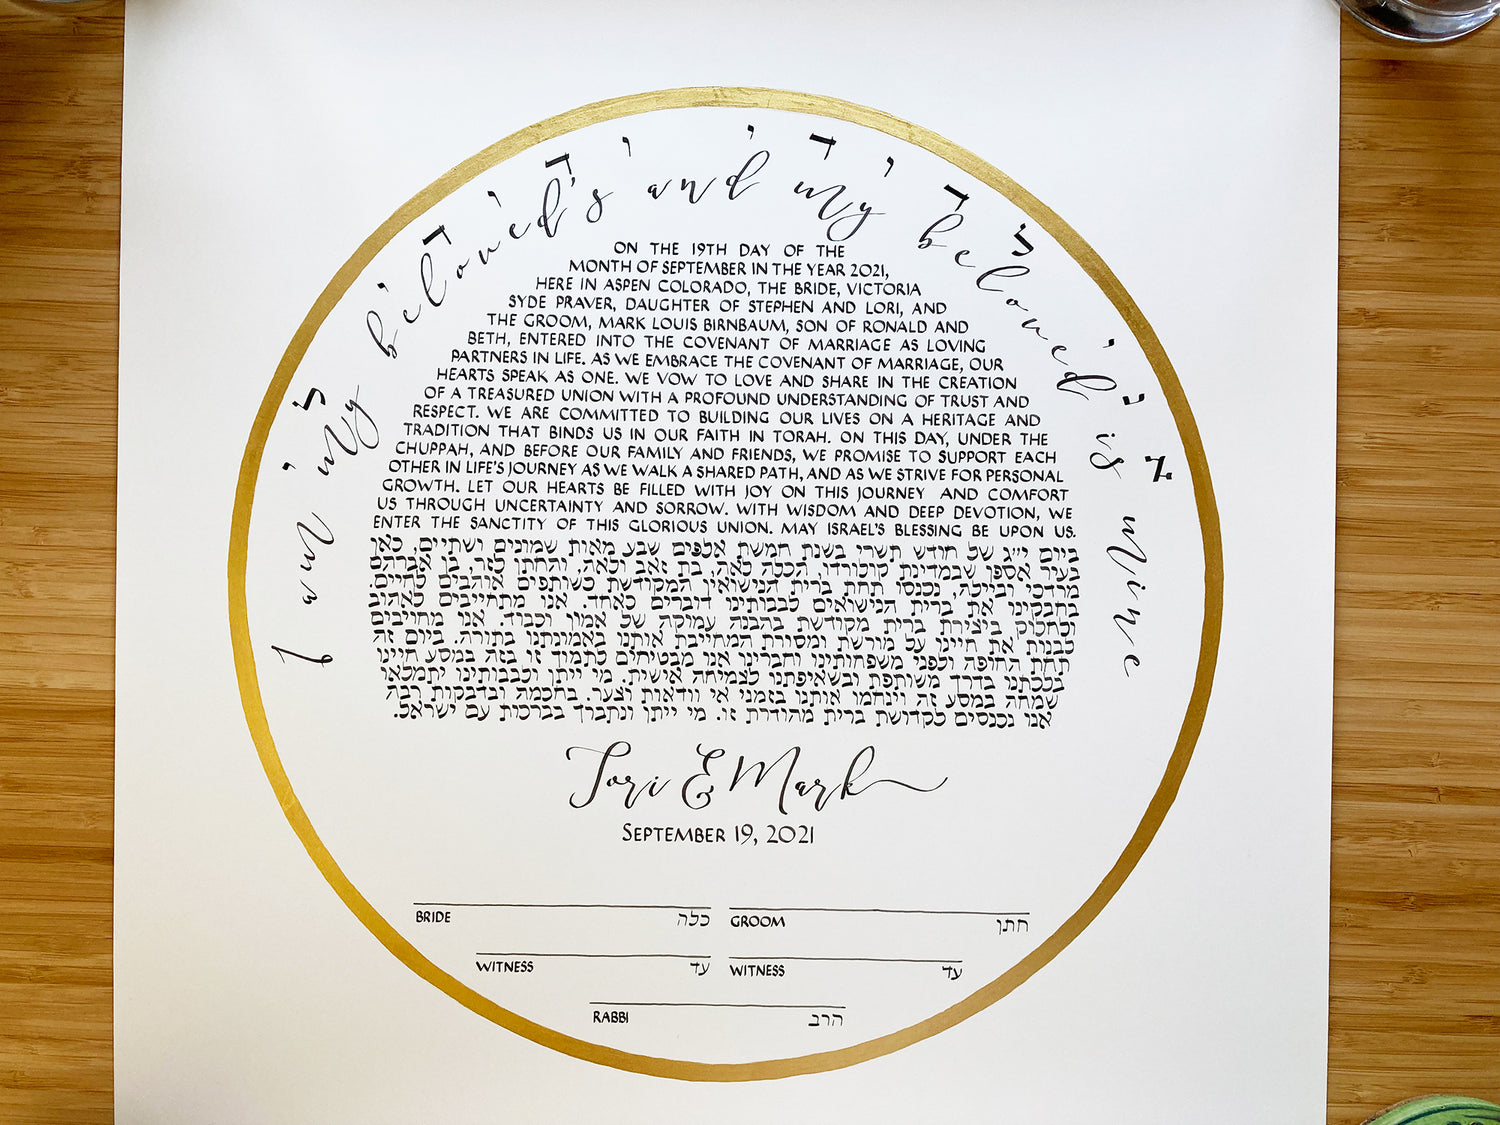 I am my beloved's and my beloved is mine
אני לדודי ודודי לי
ON THE 19TH DAY OF THE
MONTH OF SEPTEMBER IN THE YEAR 2021,
HERE IN ASPEN COLORADO, THE BRIDE, VICTORIA
SYDE PRAVER, DAUGHTER OF STEPHEN AND LORI, AND
THE GROOM, MARK LOUIS BIRNBAUM, SON OF RONALD AND
BETH, ENTERED INTO THE COVENANT OF MARRIAGE AS LOVING
PARTNERS IN LIFE. AS WE EMBRACE THE COVENANT OF MARRIAGE, OUR
HEARTS SPEAK AS ONE. WE VOW TO LOVE AND SHARE IN THE CREATION
OF A TREASURED UNION WITH A PROFOUND UNDERSTANDING OF TRUST AND
RESPECT. WE ARE COMMITTED TO BUILDING OUR LIVES ON A HERITAGE AND
TRADITION THAT BINDS US IN OUR FAITH IN TORAH. ON THIS DAY, UNDER THE
CHUPPAH, AND BEFORE OUR FAMILY AND FRIENDS, WE PROMISE TO SUPPORT EACH
OTHER IN LIFE'S JOURNEY AS WE WALK A SHARED PATH, AND AS WE STRIVE FOR PERSONAL
GROWTH. LET OUR HEARTS BE FILLED WITH JOY ON THIS JOURNEY AND COMFORT
US THROUGH UNCERTAINTY AND SORROW. WITH WISDOM AND DEEP DEVOTION, WE
ENTER THE SANCTITY OF THIS GLORIOUS UNION. MAY ISRAEL'S BLESSING BE UPON US.
ביום י״ג של חודש תשרי בשנת חמשת אלפים שבע מאות שמונים ושתיים, כאן
בעיר אספן שבמדינת קולורדו, הכלה לאה, בת זאב ולאה, והחתן לזר, בן אברהם
מרדכי וביילה, נכנסו תחת ברית הנישואין המקודשת כשותפים אוהבים לחיים.
בחבקינו את ברית הנישואים לבבותינו דוברים כאחד. אנו מתחייבים לאהוב
ולחלוק ביצירת ברית מקודשת בהבנה עמוקה של אמון וכבוד. אנו מחויבים
לבנות את חיינו על מורשת ומסורת המחייבת אותנו באמונתנו בתורה. ביום זה
תחת החופה ולפני משפחותינו וחברינו אנו מבטיחים לתמוך זו בזה במסע חיינו
בלכתנו בדרך משותפת ובשאיפתנו לצמיחה אישית. מי ייתן ולבבותינו יתמלאו
שמחה במסע זה וינחמו אותנו בזמני אי וודאות וצער. בחכמה ובדבקות רבה
אנו נכנסים לקדושת ברית מהודרת זו. מי ייתן ונתברך בברכות עם ישראל.
Tori & Mark
SEPTEMBER 19, 2021
BRIDE כלה GROOM חתן
WITNESS עד WITNESS עד
RABBI הרב